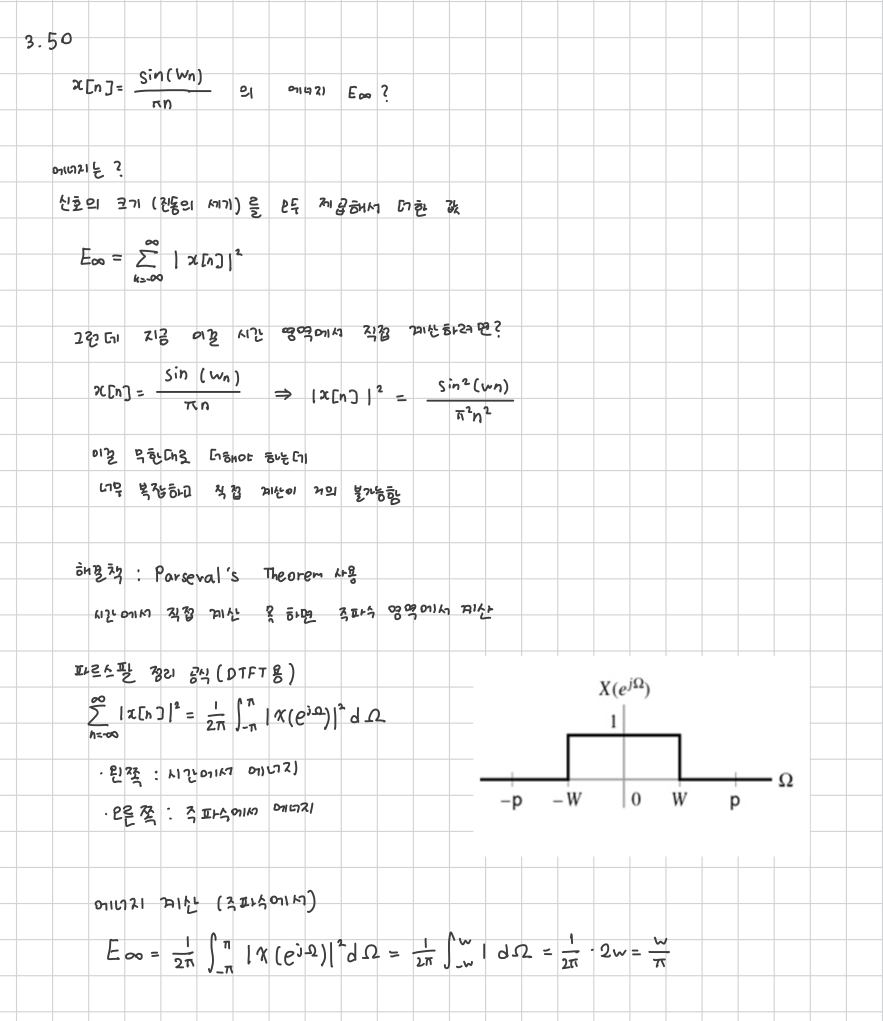 3.50
x[n] = sin(Wn) / πn 의 에너지 E∞ ?
에너지는 ?
신호의 크기 (진동의 세기)를 모두 제곱해서 더한 값
E∞ = ∑_{k=-∞}^{∞} | x[n] |²
그런데 지금 이걸 시간 영역에서 직접 계산하려면?
x[n] = sin (Wn) / πn ⇒ | x[n] |² = sin²(wn) / π²n²
이걸 무한대로 더해야 하는데
너무 복잡하고 직접 계산이 거의 불가능함
해결책 : Parseval's Theorem 사용
시간에서 직접 계산 못 하면 주파수 영역에서 계산
파르스팔 정리 공식 (DTFT용)
∑_{n=-∞}^{∞} |x[n]|² = 1/2π ∫_{-π}^{π} |X(e^{jΩ})|² dΩ
· 왼쪽 : 시간에서 에너지
· 오른쪽 : 주파수에서 에너지
X(e^{jΩ})
1
Ω
-p -W 0 W p
에너지 계산 (주파수에서)
E∞ = 1/2π ∫_{-π}^{π} |X(e^{jΩ})|² dΩ = 1/2π ∫_{-w}^{w} 1 dΩ = 1/2π · 2w = w/π